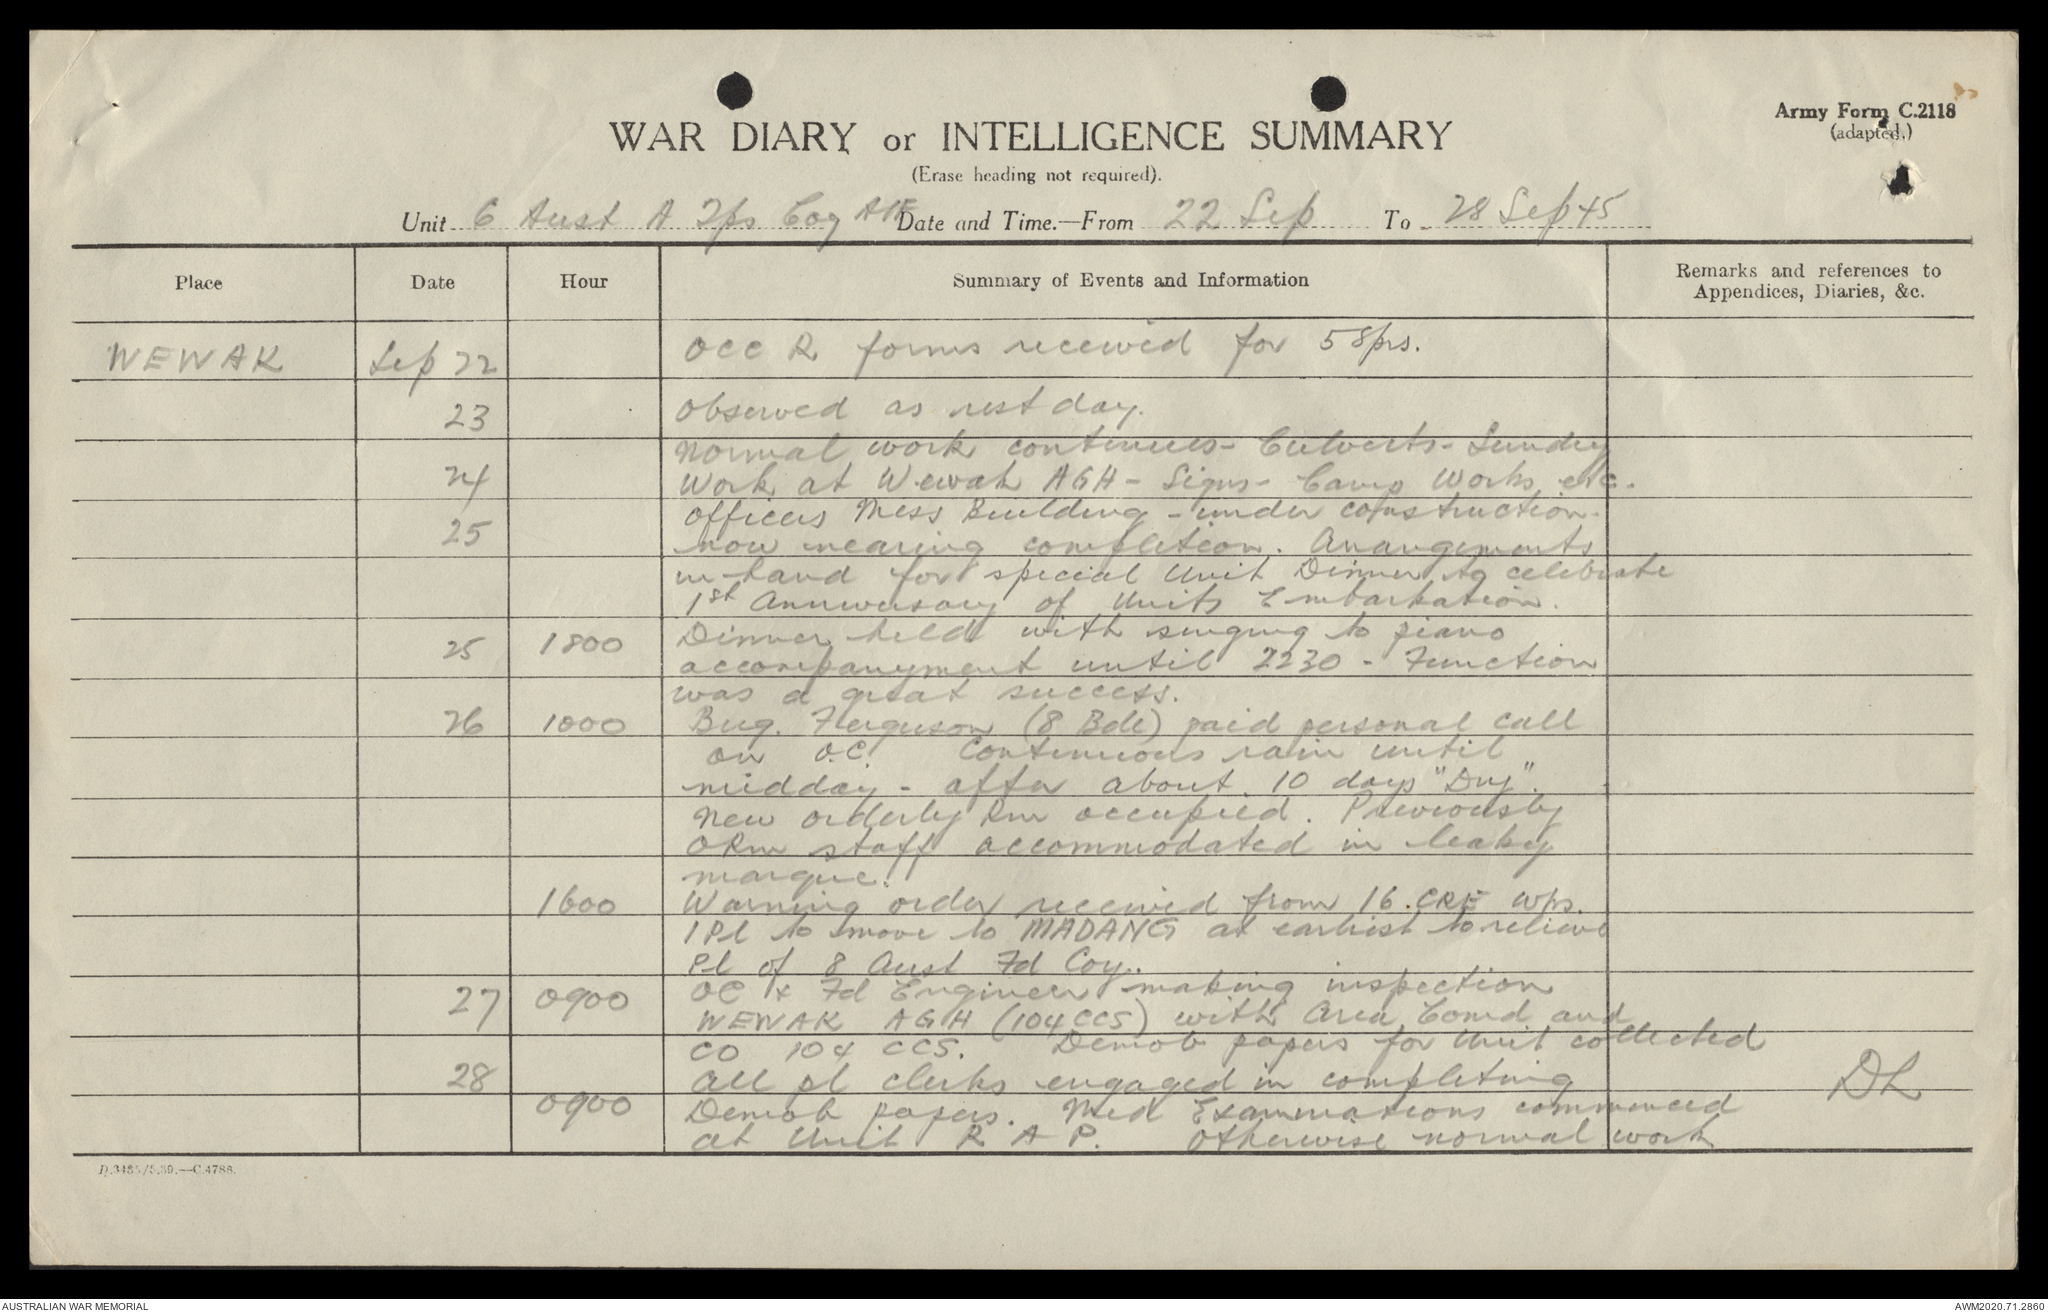 Army Form C.2118
(adapted.)
WAR DIARY or INTELLIGENCE SUMMARY
(Erase heading not required).
Unit 6 Aust A Tps Coy AIF Date and Time.—From 22 Sep To 28 Sep 45
Place Date Hour Summary of Events and Information Remarks and references to Appendices, Diaries, &c.
WEWAK Sep 22 OCC R forms received for 58 prs.
23 Observed as rest day.
Normal work continues - Culverts - Sundry
24 Work at Wewak AGH - Signs - Camp Works etc.
25 Officers Mess Building - under construction -
now nearing completion. Arrangements
in-hand for special Unit Dinner to celebrate
1st Anniversary of Units Embarkation.
25 1800 Dinner held with singing to piano
accompanyment until 2230 - Function
was a great success.
26 1000 Brig. Ferguson (8 Bde) paid personal call
on O.C. Continuous rain until
midday - after about 10 days "Dry".
New orderly Rm occupied. Previously
ORm staff accommodated in leaky
marque.
1600 Warning order received from 16. CRE Wks.
1 Pl to move to MADANG at earliest to relieve
Pl of 8 Aust Fd Coy.
27 0900 OC & Fd Engineer making inspection
WEWAK AGH (104 CCS) with Area Comd and
CO 104 CCS. Demob papers for Unit collected
28 All pl clerks engaged in completing
0900 Demob papers. Med Examinations commenced
at Unit R A P. Otherwise normal work
DL
D.3485/5.39.—C.4788.
AUSTRALIAN WAR MEMORIAL
AWM2020.71.2860